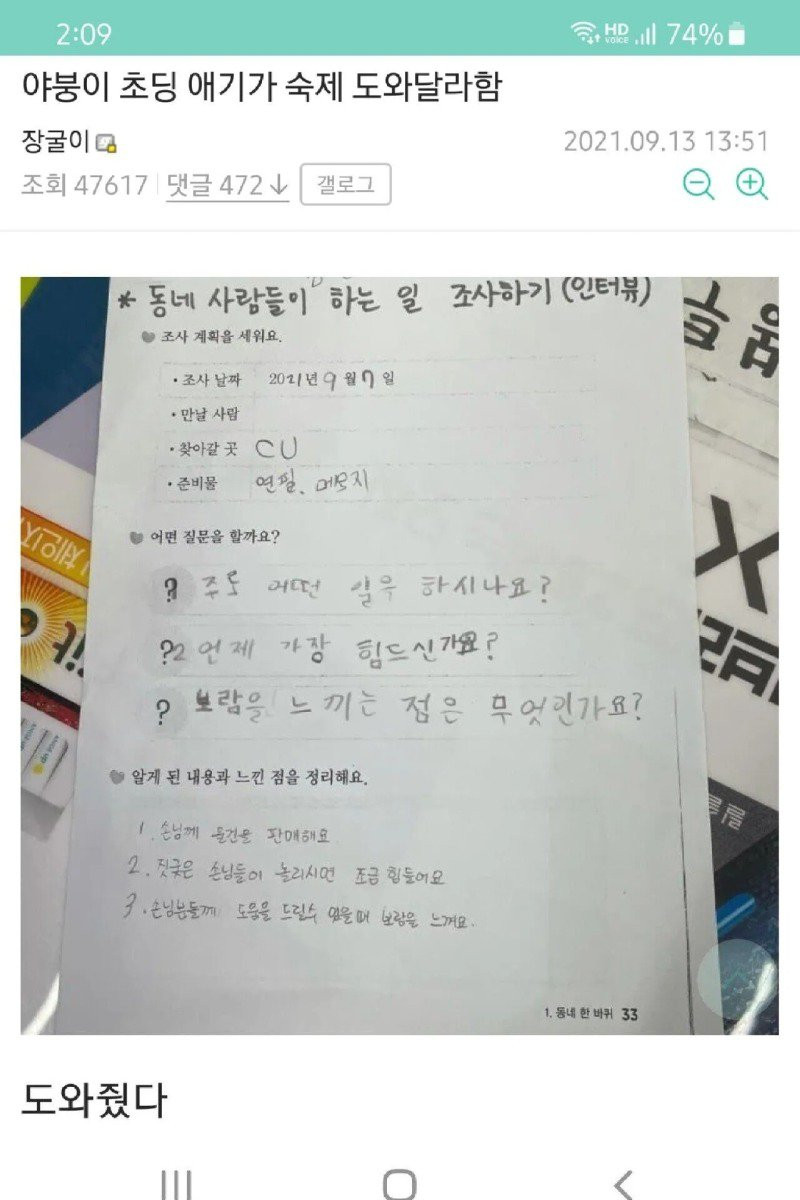 2:09 HD VOICE 74%
야붕이 초딩 애기가 숙제 도와달라함
장굴이 2021.09.13 13:51
조회 47617 댓글 472 갤로그
* 동네 사람들이 하는 일 조사하기 (인터뷰)
조사 계획을 세워요.
• 조사 날짜 2021년 9월 7일
• 만날 사람
• 찾아갈 곳 CU
• 준비물 연필, 메모지
어떤 질문을 할까요?
? 주로 어떤 일을 하시나요?
?2 언제 가장 힘드신가요?
? 보람을 느끼는 점은 무엇인가요?
알게 된 내용과 느낀 점을 정리해요.
1. 손님께 물건을 판매해요
2. 짓궂은 손님들이 놀리시면 조금 힘들어요
3. 손님분들께 도움을 드릴수 있을때 보람을 느껴요.
1. 동네 한 바퀴 33
도와줬다